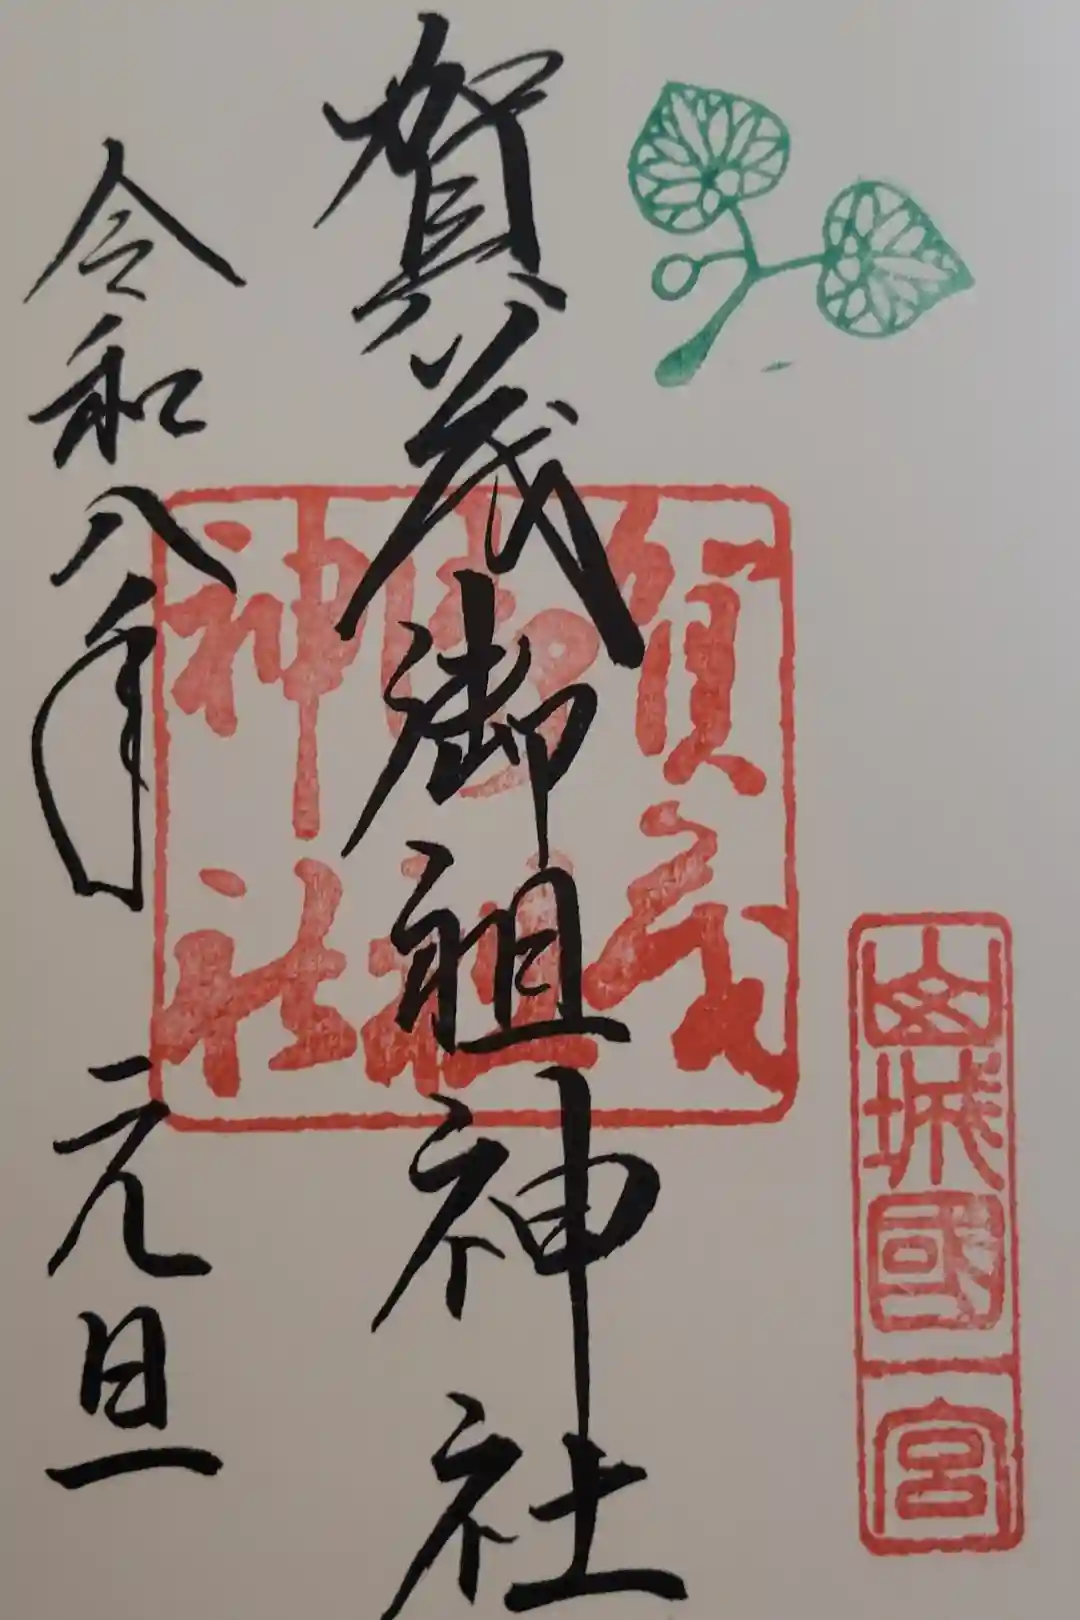 山城國一宮
賀茂御祖神社
賀茂
御祖
神社
令和八年 元旦